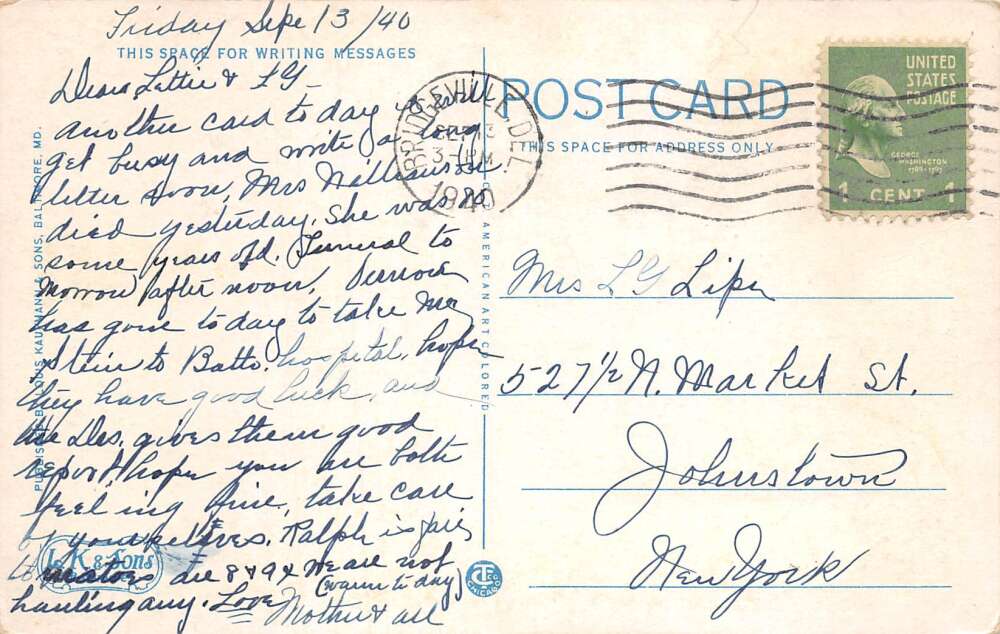 Friday Sept 13/40
THIS SPACE FOR WRITING MESSAGES
Dear Lettie & LG-
another card to day will
get busy and write a long
letter soon, Mrs Williamson
died yesterday. She was 70
some years old. Funeral to
morrow after noon,
has gone to day to take Mrs
Stein to Balto. hospital, hope
they have good luck, and
the Drs. gives them good
report, hope you are both
feeling fine, take care
of yourselves. Ralph is fair
tomatoes are 8 & 9¢ we are not
hauling any. (warm to day)
Love Mother & all
PUBLISHED BY LOUIS KAUFMANN & SONS, BALTIMORE, MD.
L. K. & Sons
C. T. AMERICAN ART COLORED
CT CHICAGO
POST CARD
THIS SPACE FOR ADDRESS ONLY
BRIDGEVILLE DEL.
SEP 13
3 PM
1940
UNITED
STATES
POSTAGE
GEORGE
WASHINGTON
1789-1797
1 CENT 1
Mrs LG Lipe
527 1/2 N. Market St.
Johnstown
New York